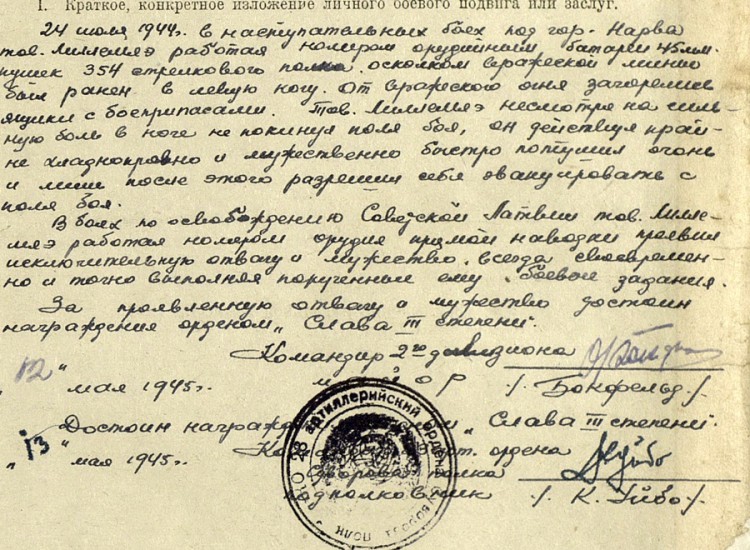 I. Краткое, конкретное изложение личного боевого подвига или заслуг.
24 июля 1944г. в наступательных боях под гор. Нарва
тов. Лиллемяэ работая номером орудийным батареи 45мм.
пушек 354 стрелкового полка. осколком вражеской мины
был ранен в левую ногу. От вражеского огня загорелись
ящики с боеприпасами. Тов. Лиллемяэ несмотря на силь-
ную боль в ноге не покинул поля боя, он действуя край-
не хладнокровно и мужественно быстро потушил огонь
и лиш после этого разрешил себя эвакуировать с
поля боя.
В боях по освобождению Советской Латвии тов. Лилле-
мяэ работая номером орудия прямой наводки проявил
исключительную отвагу и мужество. всегда своевремен-
но и точно выполняя порученные ему боевые задания.
За проявленную отвагу и мужество достоин
награждения орденом „Слава III степени".
Командир 2го дивизиона
"12" мая 1945г. майор /. Бонфельд./.
Достоин награжд „Слава III степени".
Ко арт. ордена
"13" мая 1945г. полка
подполковник /. К. Уйбо./.
28 артиллерийский ордена